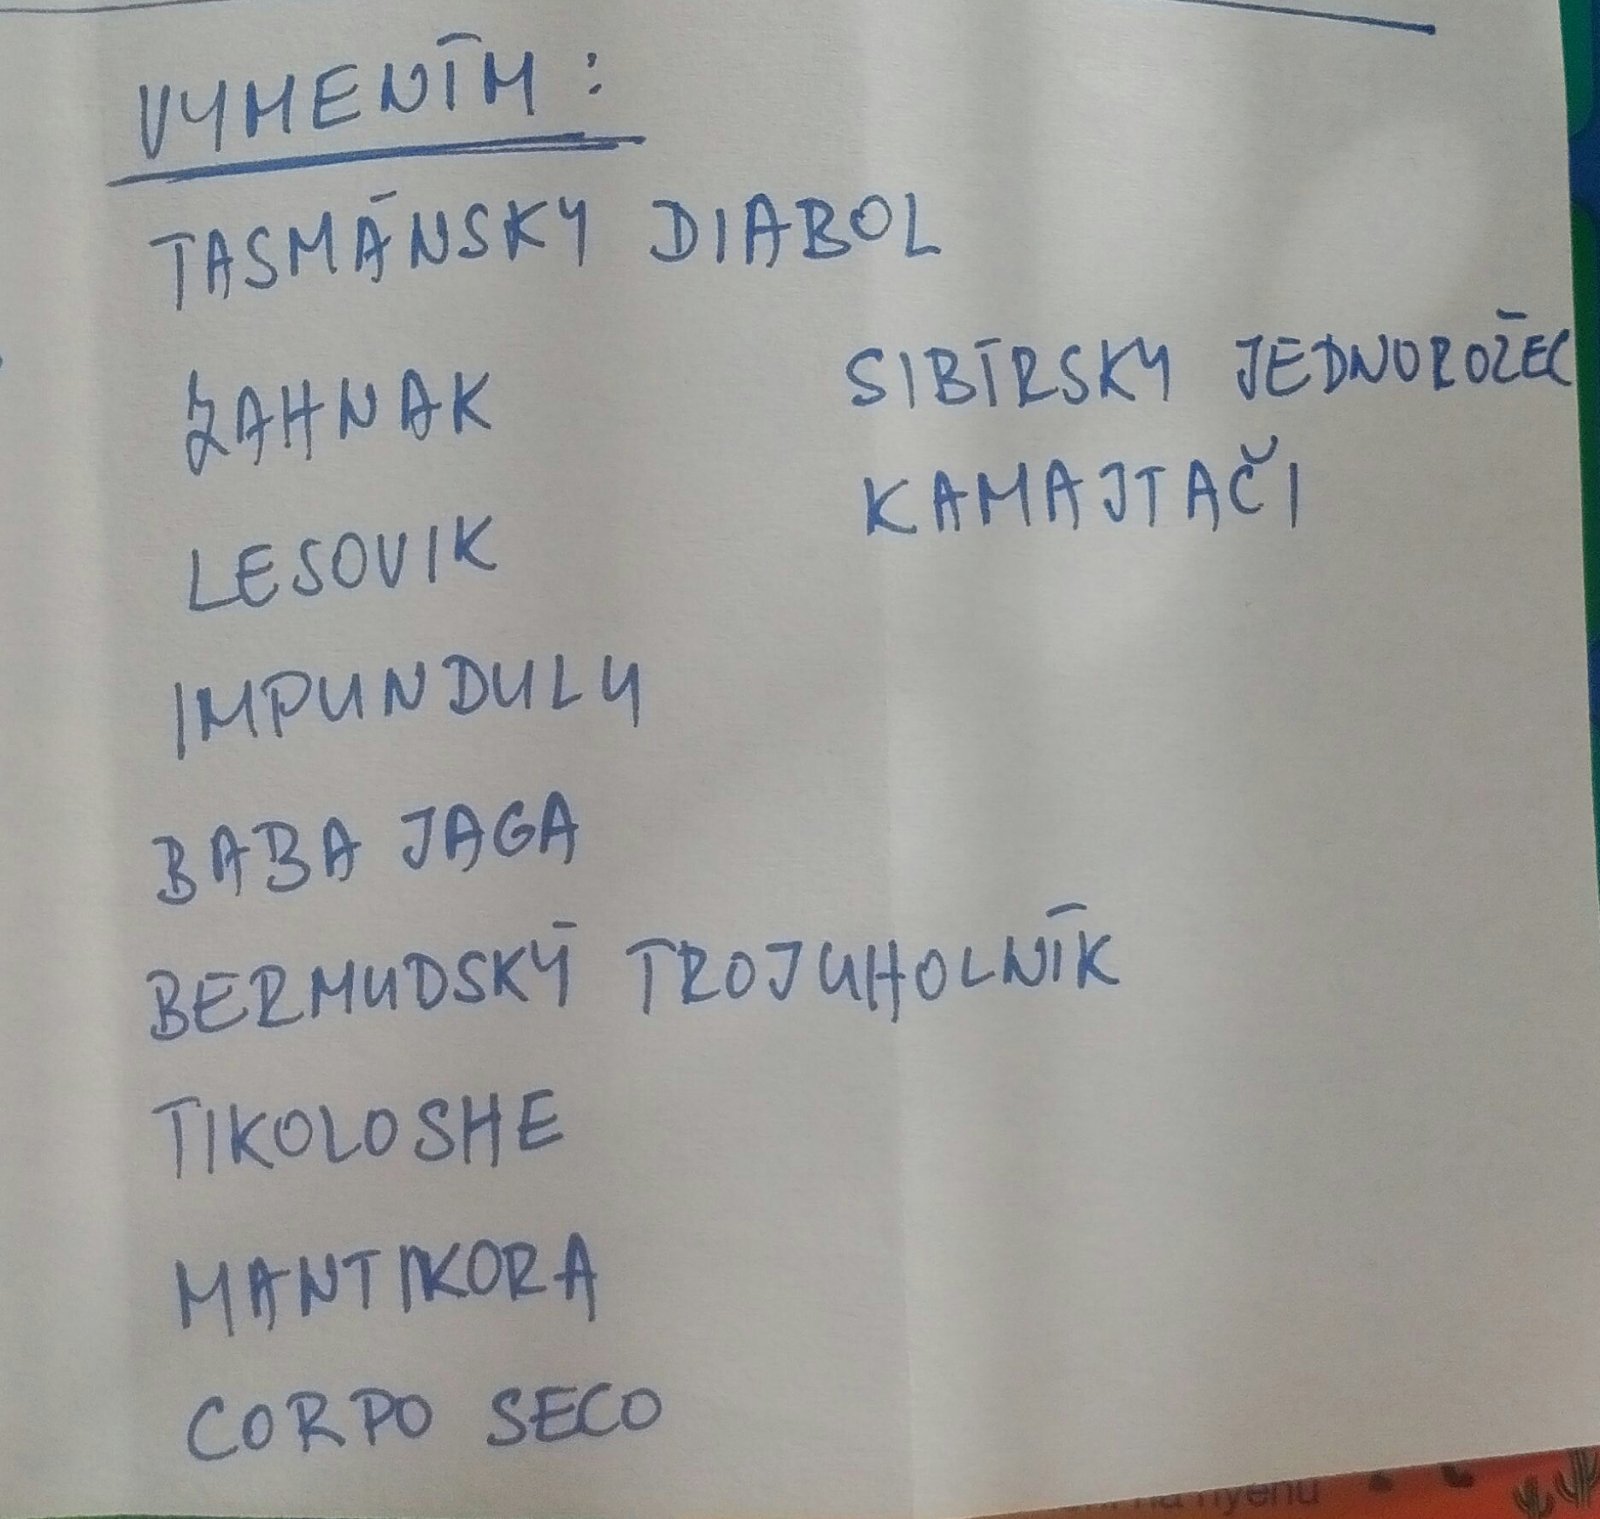 VYMENÍM:
TASMÁNSKY DIABOL
ZAHNAK
LESOVIK
IMPUNDULU
BABA JAGA
BERMUDSKÝ TROJUHOLNÍK
TIKOLOSHE
MANTIKORA
CORPO SECO
SIBÍRSKY JEDNOROŽEC
KAMAJTAČI